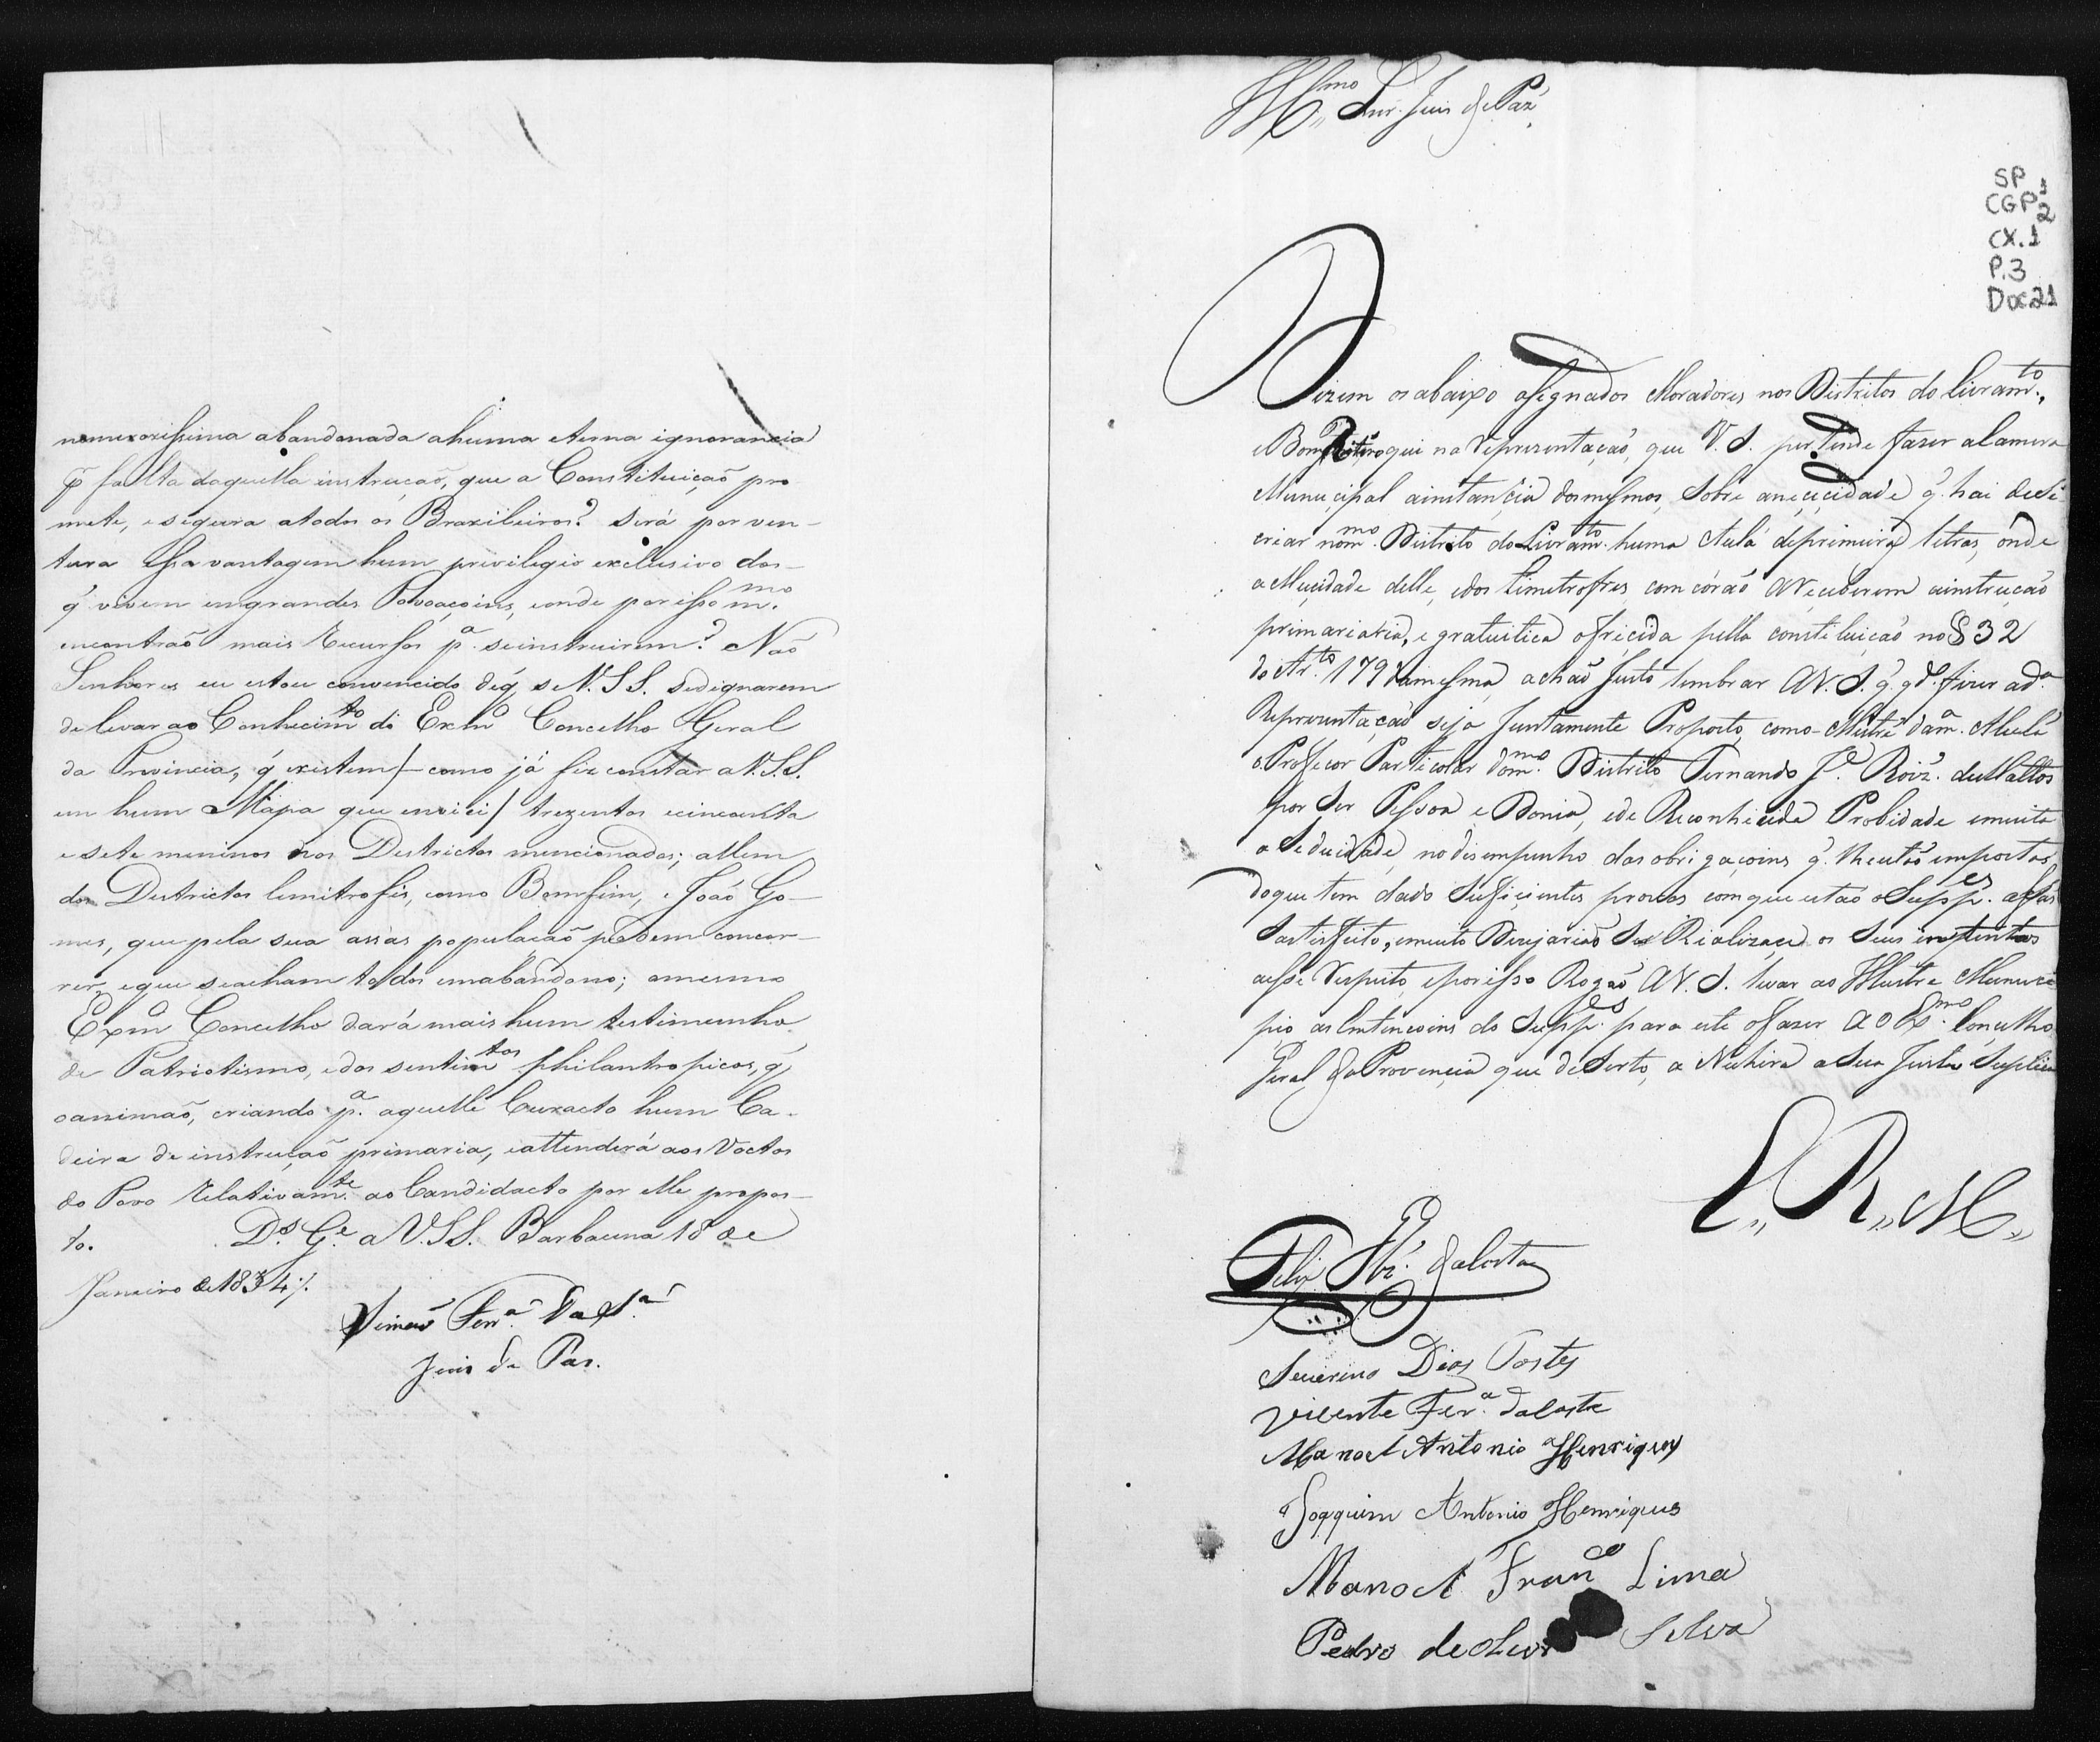 numerosissima abandonada a huma eterna ignorancia
pr falta daquella instrucaõ, que a Constituiçaõ pro
mete, e segura a todos os Brazileiros? Será por ven-
tura essa vantagem hum privilegio exclusivo dos-
q̃ vivem em grandes Povoaçoins, e onde por isso mmo.
encontraõ mais recursos pa. se instruirem? Naõ
Senhores eu estou convencido de q̃, se V.SS. se dignarem
de levar ao Conhecimto do Exmo Concelho Geral
da Provincia, q̃ existem/-como já fiz constar a V.SS.
em hum Mapa que enviei/ trezentos e cincoenta
e sete meninos nos Destrictos mencionados; allem
dos Destrictos limitrofis, como Bomfim, e Joaõ Go-
mes, que pela sua assás populaçaõ podem concor-
rer, e que se acham todos em abandono; o mesmo
Exmo Concelho dará mais hum testimunho
de Patriotismo, e dos sentimtos philantropicos, q̃
o animaõ, criando pa. aquelle Curacto hum Ca-
deira de instruçaõ primaria, e attenderá aos Voctos
do Povo relativamte. ao Candidacto por elle propos-
to. Ds. Ge. a V.SS. Barbacena 18 de
Janeiro de 1834/.
Simaõ Ferra. da Sa.
Juis de Pas.
Illmo Snr. Juis de Paz
SP 1
CGP 2
CX.1
P.3
Doc 21
Dizem os abaixo asignados Moradores nos Distritos do Livramto.,
e Bom Retiro qui na Representaçaõ, que V.S. pertende fazer a Camera
Municipal a instancia dos mesmos, sobre a nececidade q̃ hai de se
criar no mmo. Distrito do Livramto. huma Aula de primeiras letras, onde
a Mucidade delle, e dos Limetrofres comcóraõ a Receberem a instrucaõ
primariaria, e gratuitica ofricida pella constituiçaõ no § 32
do Arto. 179 da mesma achaõ Justo lembrar a V.S. q̃ qdo. fizer a da.
Reprezentaçaõ seja Juntamente Proposto, como Mestre da ma. Aula
o Profecor Particolar do mmo. Distrito Fernando Je. Roiz. de Mattos
por Ser Pessoa e Donia, e de Reconhecida Probidade e muita
aseduidade no disempenho das obrigacoins q̃. lhe estaõ empostas,
do que tem dado Suficientes provas com que estaõ os Suppes. assás
Sastisfeitos, e muito Dezejariaõ Ser Rializaced os Seus intentos
a esse respeito, e por isso Rogaõ a V.S. levar ao Illustre Munici
pio as Entencoins do Suppes. para este o fazer ao Exmo. Concelho
Geral da Provencia que de Serto, a Nuhira a Sua Justa Suplica
E,, R,, M,,
Felis Glz. da Costa
Severino Dias Fortes
Vicente Fera. da Costa
Manoel Antonio Henriques
Joaquim Antonio Henriques
Manoel Franco Lima
Pedro de Silva